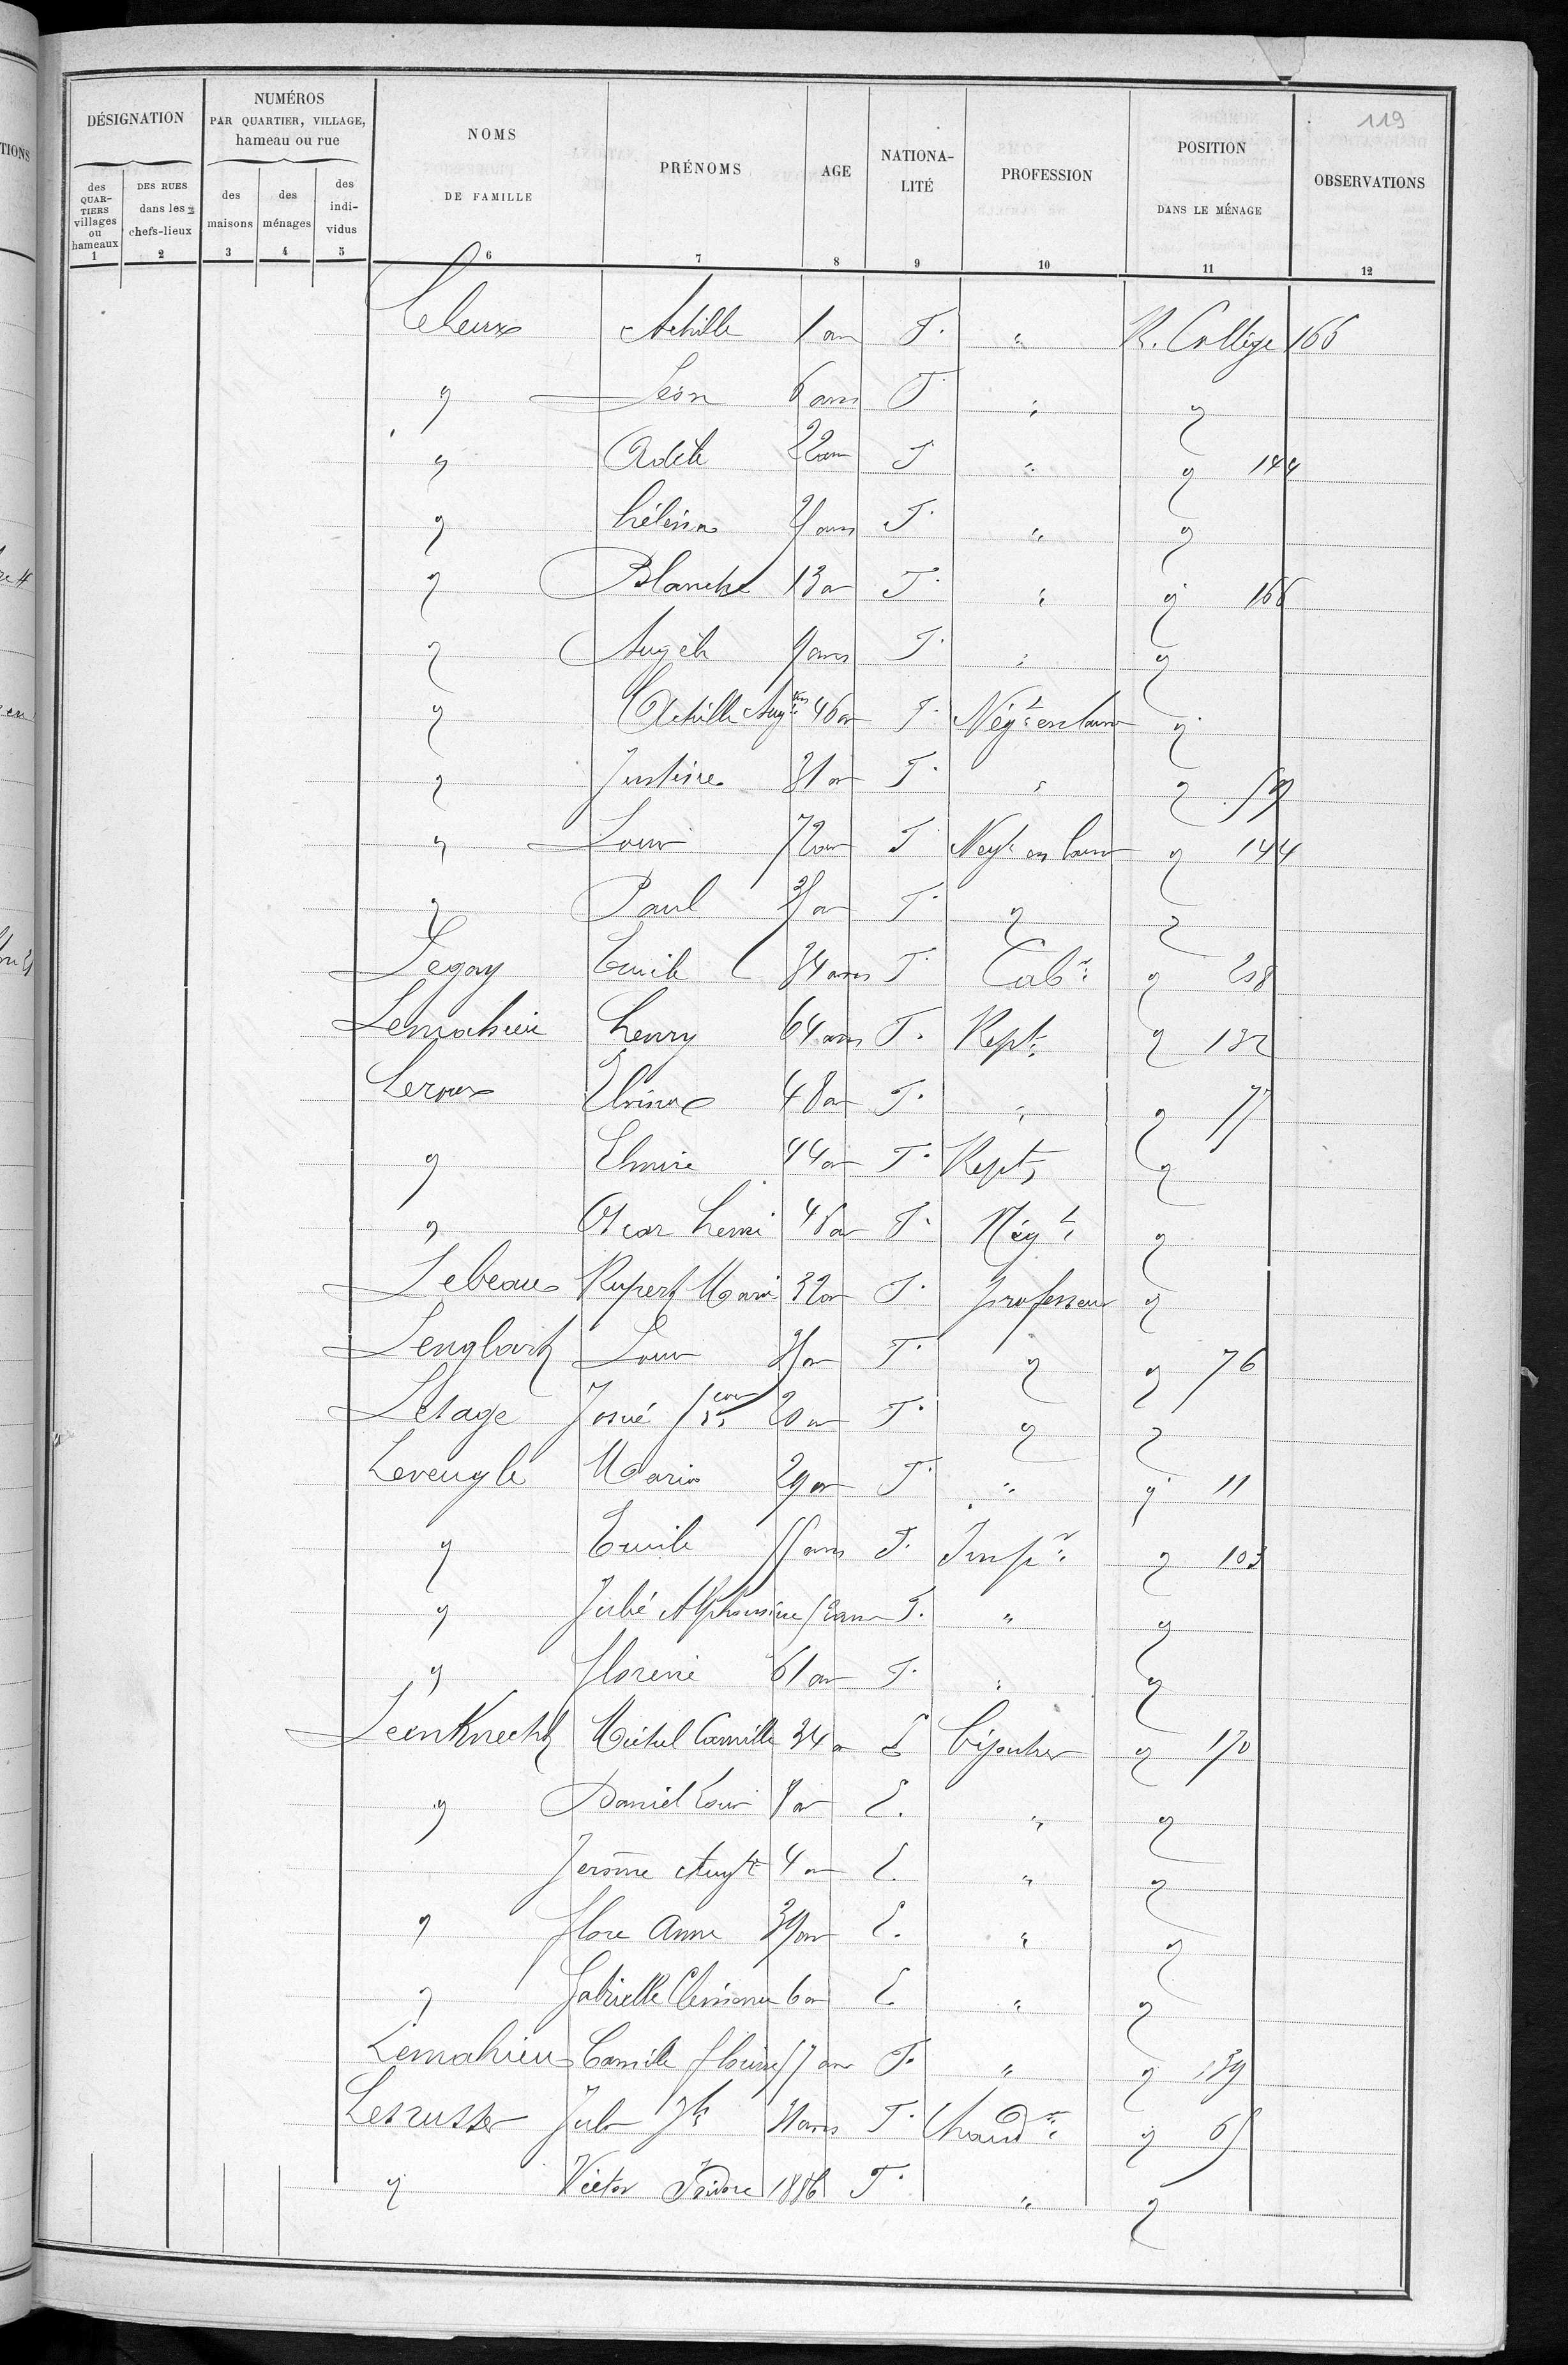 119
DÉSIGNATION
NUMÉROS PAR QUARTIER, VILLAGE, hameau ou rue
NOMS DE FAMILLE
PRÉNOMS
AGE
NATIONALITÉ
PROFESSION
POSITION DANS LE MÉNAGE
OBSERVATIONS
des QUARTIERS villages ou hameaux
DES RUES dans les chefs-lieux
des maisons
des ménages
des individus
1 2 3 4 5 6 7 8 9 10 11 12
Leleux Achille 1 an F. " R. Collège 166
" Léon 6 ans F " "
" Adèle 22 an F " " 144
" Héléna ans F. " "
" Blanche 13 an F. " " 166
" Angèle 9 ans F. " "
" Achille Aug 46 an F. Nég.t en laine "
" Justine 31 an F. " "
" Louis 72 an F Neg.t en laine " 144
" Paul an F. " "
Legay Emile 34 ans F Cab.r " 208
Lemahieu Henry 64 ans F. Rept. " 132
Leroux 48 an F. " " 77
" Elmire 44 an F. Rept. "
" Oscar Henri an F. Nég.t "
Lebeau Rupert Marie 32 an F. professeur "
Lenglart Louis an F. " " 76
Lesage Josué 20 an F. " "
Leveugle Maria 29 an F. " " 11
" Emile ans F. " 103
" Julié Alphonsine 52 ans F. " "
" florence 61 an F. " "
Leinknecht Michel Camille 34 a bijoutier " 170
" Daniel Louis 8 an " "
Jerôme Aug.te 4 an " "
" flore Anne an " "
" Gabrielle Clémence 6 an " "
Lemahieu Camille 57 an F. " " 139
Jules 31 ans F. Chaud.r " 65
" Victor Isidore 1886 F. " "